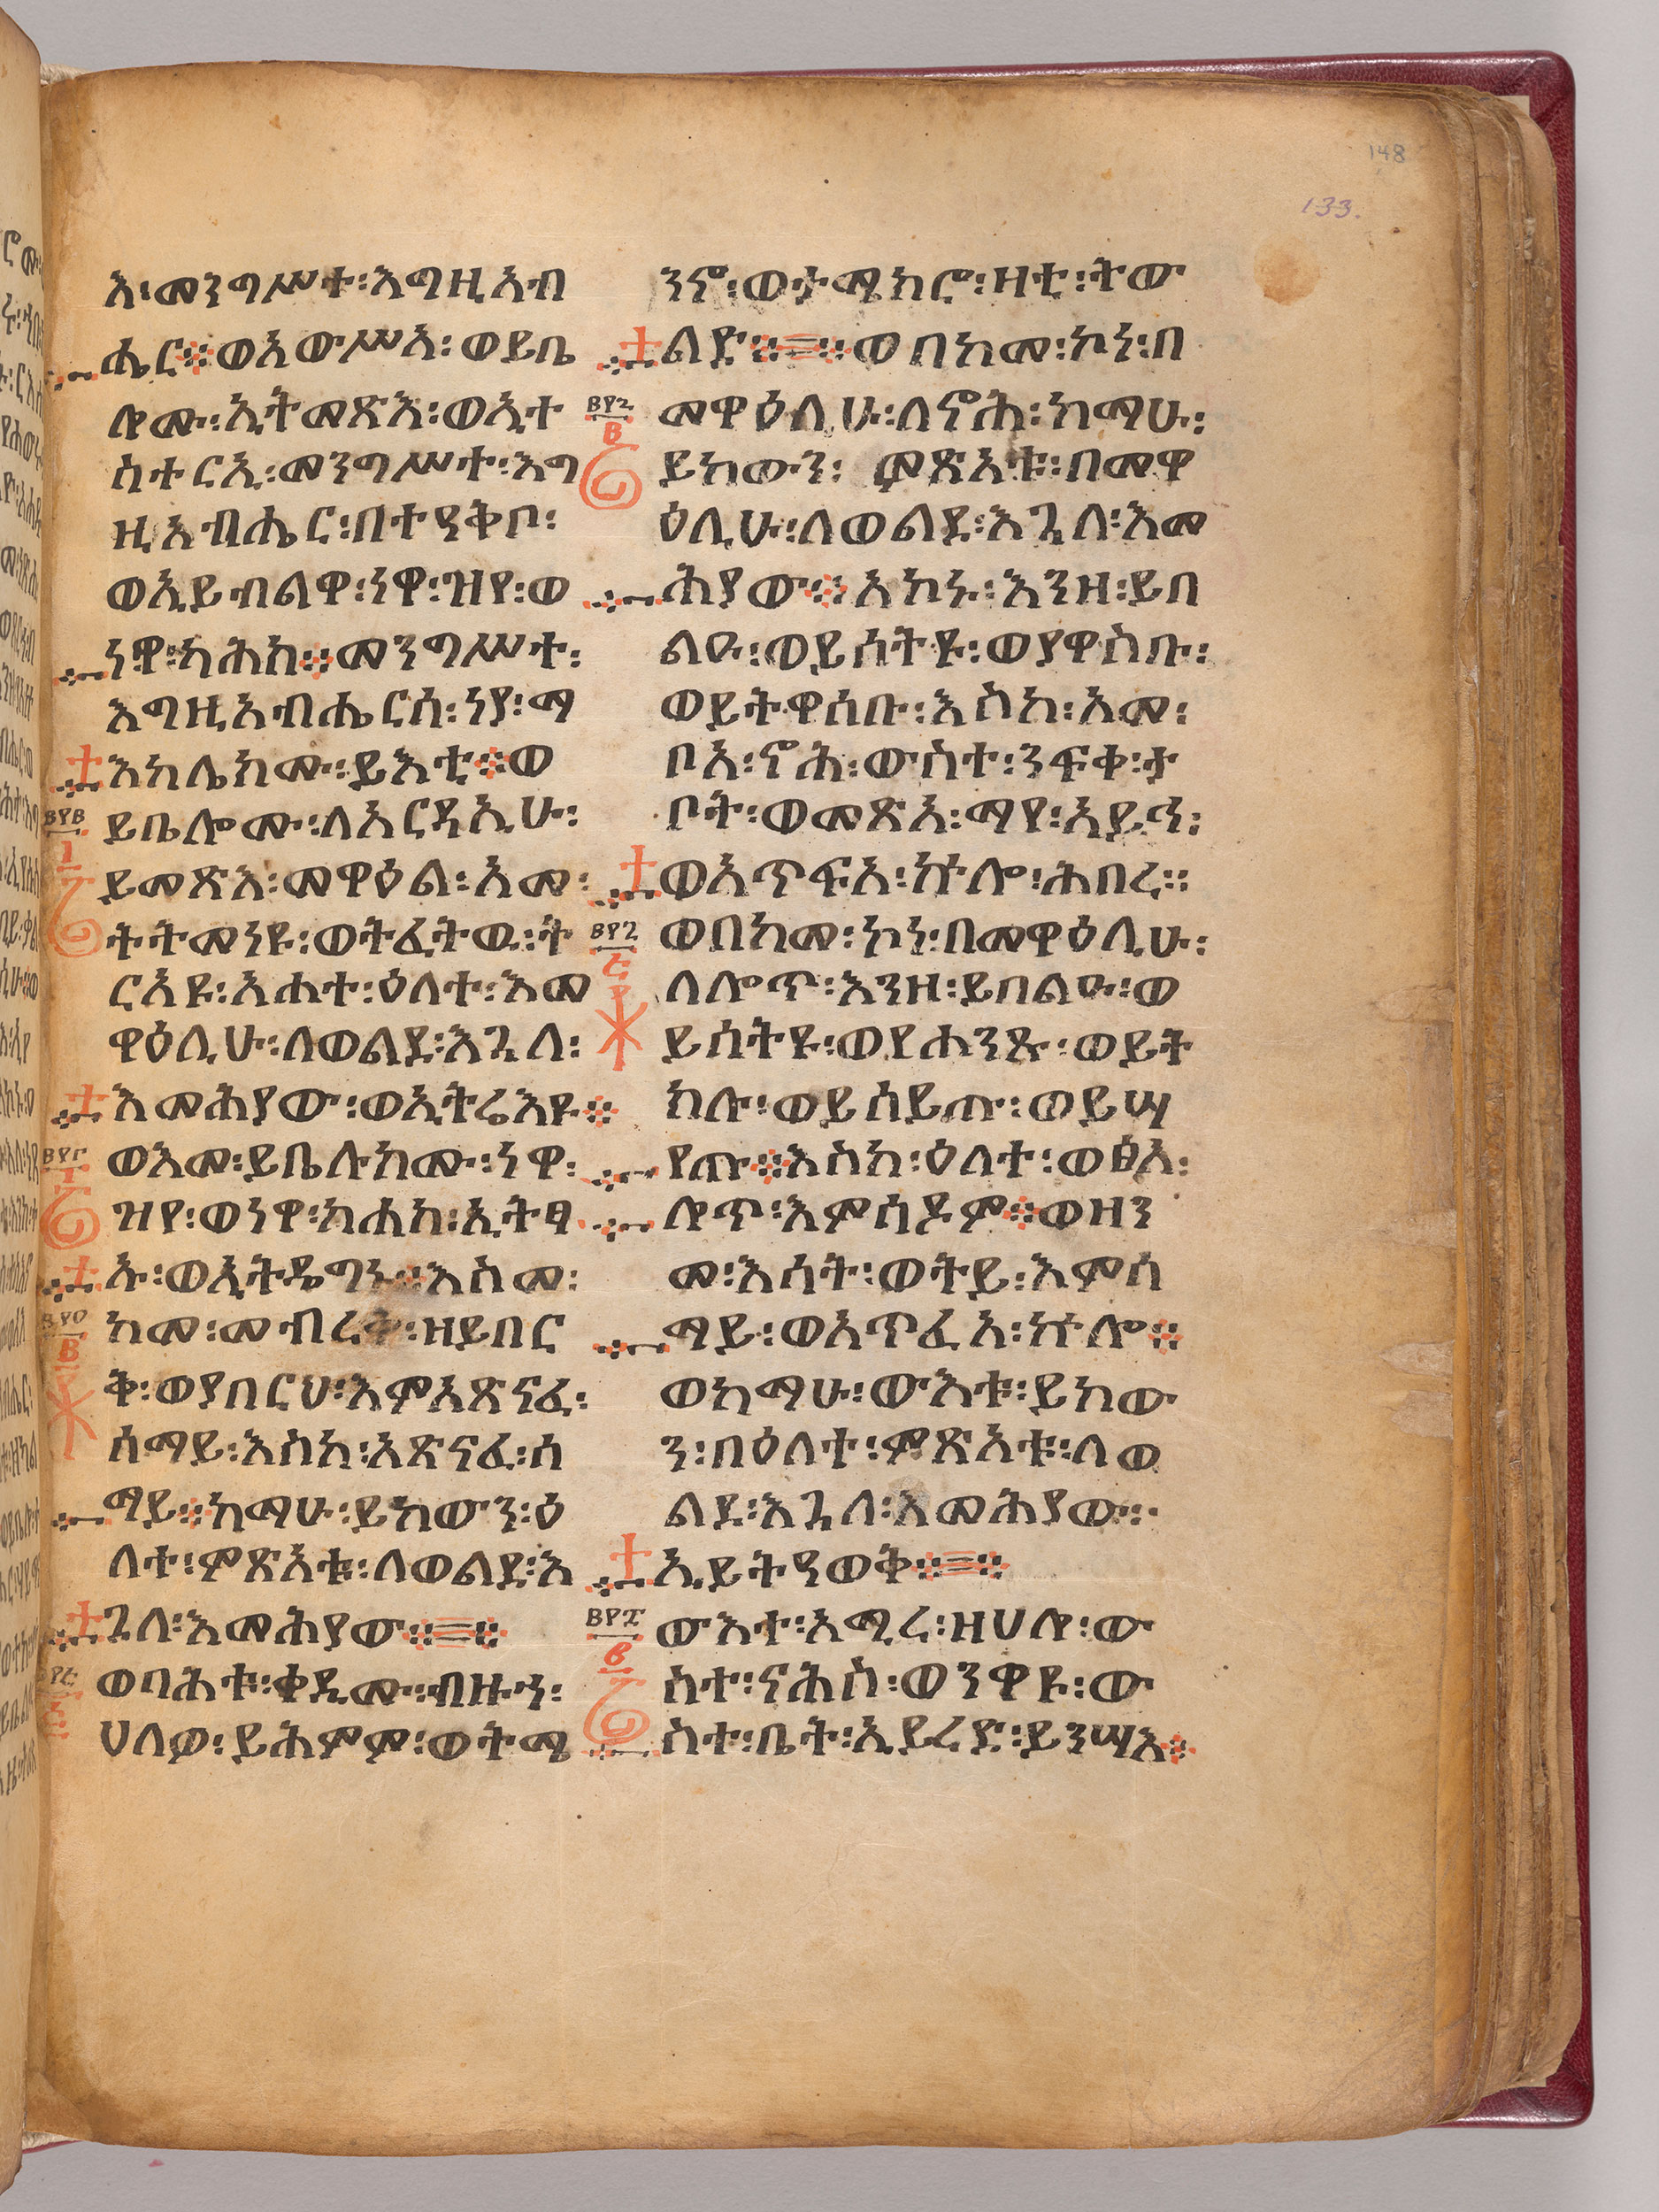 148
133.
እ፡መንግሥተ፡እግዚአብ
ሔር።ወአውሥአ፡ወይቤ
ሎሙ፡ኢትመጽእ፡ወኢተ
ስተርኢ፡መንግሥተ፡እግ
ዚአብሔር፡በተዓቅቦ፡
ወኢይብልዋ፡ነዋ፡ዝየ፡ወ
ነዋ፡ካሕከ።መንግሥተ፡
እግዚአብሔርሰ፡ነያ፡ማ
እከሌክሙ፡ይእቲ።ወ
ይቤሎሙ፡ለአርዳኢሁ፡
ይመጽእ፡መዋዕል፡አመ፡
ትትመነዩ፡ወትፈትዉ፡ት
ርአዩ፡አሐተ፡ዕለተ፡እመ
ዋዕሊሁ፡ለወልደ፡እጓለ፡
እመሕያው፡ወኢትሬእዩ።
ወእመ፡ይቤሉክሙ፡ነዋ፡
ዝየ፡ወነዋ፡ካሐከ፡ኢትፃ
ኡ፡ወኢትዴግኑ።እስመ፡
ከመ፡መብረቅ፡ዘይበር
ቅ፡ወያበርህ፡እምአጽናፈ፡
ሰማይ፡እስከ፡አጽናፈ፡ሰ
ማይ።ከማሁ፡ይከውን፡ዕ
ለተ፡ምጽአቱ፡ለወልደ፡እ
ጓለ፡እመሕያው።=።
ወባሕቱ፡ቀዲሙ፡ብዙኀ፡
ሀለዎ፡ይሕምም፡ወትሜ
ንኖ፡ወታሜክሮ፡ዛቲ፡ትው
ልድ።=።ወበከመ፡ኮነ፡በ
መዋዕለሁ፡ለኖሕ፡ከማሁ፡
ይከውን፡ምጽአቱ፡በመዋ
ዕሊሁ፡ለወልደ፡እጓለ፡እመ
ሕያው።እኮኑ፡እንዘ፡ይበ
ልዑ፡ወይሰትዩ፡ወያዋስቡ፡
ወይትዋሰቡ፡እስከ፡አመ፡
ቦአ፡ኖሕ፡ውስተ፡ንፍቀ፡ታ
ቦት፡ወመጽአ፡ማየ፡አይኅ፡
ወአጥፍአ፡ኵሎ፡ሕበረ።
ወበከመ፡ኮነ፡በመዋዕሊሁ፡
ለሎጥ፡እንዘ፡ይበልዑ፡ወ
ይሰትዩ፡ወየሐንጹ፡ወይት
ከሉ፡ወይሰይጡ፡ወይሣ
የጡ።እስከ፡ዕለተ፡ወፅአ፡
ሎጥ፡እምሰዶም።ወዘን
መ፡እሳት፡ወትይ፡እምሰ
ማይ፡ወአጥፈአ፡ኵሎ።
ወከማሁ፡ውእቱ፡ይከው
ን፡በዕለተ፡ምጽአቱ፡ለወ
ልደ፡እጓለ፡እመሕያው፡
ኢይትዓወቅ።=።
ውእተ፡አሚረ፡ዘሀሎ፡ው
ስተ፡ናሕስ፡ወንዋዩ፡ው
ስተ፡ቤት፡ኢይረድ፡ይንሣእ።